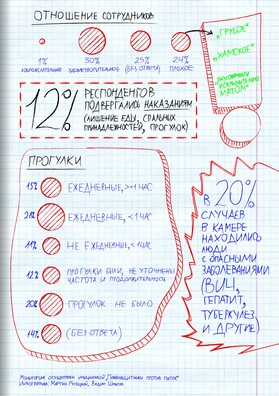 ОТНОШЕНИЕ СОТРУДНИКОВ
1% 30% 25% 24%
ДОБРОЖЕЛАТЕЛЬНОЕ УДОВЛЕТВОРИТЕЛЬНОЕ (БЕЗ ОТВЕТА) ПЛОХОЕ
„ГРУБОЕ"
„ХАМСКОЕ"
РАЗГОВАРИВАЛИ
"ИСКЛЮЧИТЕЛЬНО
МАТОМ"
12% РЕСПОНДЕНТОВ
ПОДВЕРГАЛИСЬ НАКАЗАНИЯМ
(ЛИШЕНИЕ ЕДЫ, СПАЛЬНЫХ
ПРИНАДЛЕЖНОСТЕЙ, ПРОГУЛОК)
ПРОГУЛКИ
15% ЕЖЕДНЕВНЫЕ, >=1 ЧАС
ЕЖЕДНЕВНЫЕ, <1 ЧАС
НЕ ЕЖЕДНЕВНЫЕ, <1 ЧАС
12% ПРОГУЛКИ БЫЛИ, НЕ УТОЧНЕНЫ
ЧАСТОТА И ПРОДОЛЖИТЕЛЬНОСТЬ
20% ПРОГУЛОК НЕ БЫЛО
14% (БЕЗ ОТВЕТА)
В 20%
СЛУЧАЕВ
В КАМЕРЕ
НАХОДИЛИСЬ
ЛЮДИ
С ОПАСНЫМИ
ЗАБОЛЕВАНИЯМИ
(ВИЧ,
ГЕПАТИТ,
ТУБЕРКУЛЕЗ
И ДРУГИЕ)
Мониторинг осуществлен инициативой „Правозащитники против пыток"